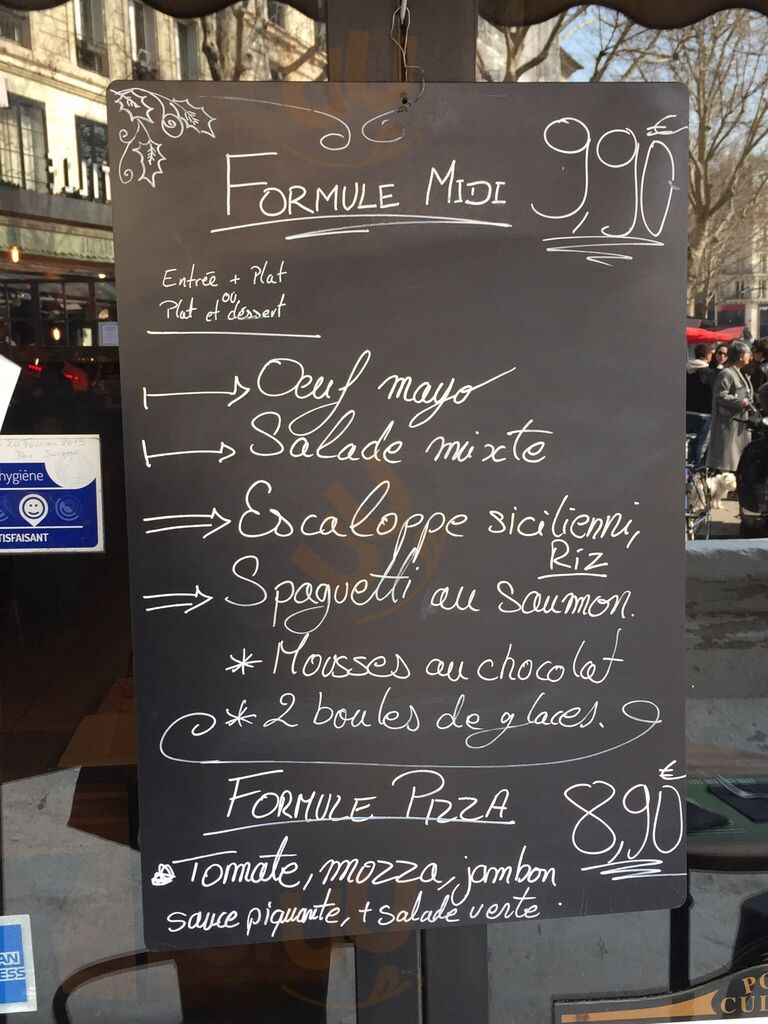 FORMULE MIDI 9,90€
Entrée + Plat
ou
Plat et déssert
Oeuf mayo
Salade mixte
Escaloppe sicilienni,
Riz
Spaguetti au saumon.
* Mousses au chocolat
* 2 boules de glaces.
FORMULE PIZZA 8,90€
Tomate, mozza, jambon
sauce piquante, + salade verte.
20 Février 2015
hygiène
TISFAISANT
AN
ESS
PO
CUL